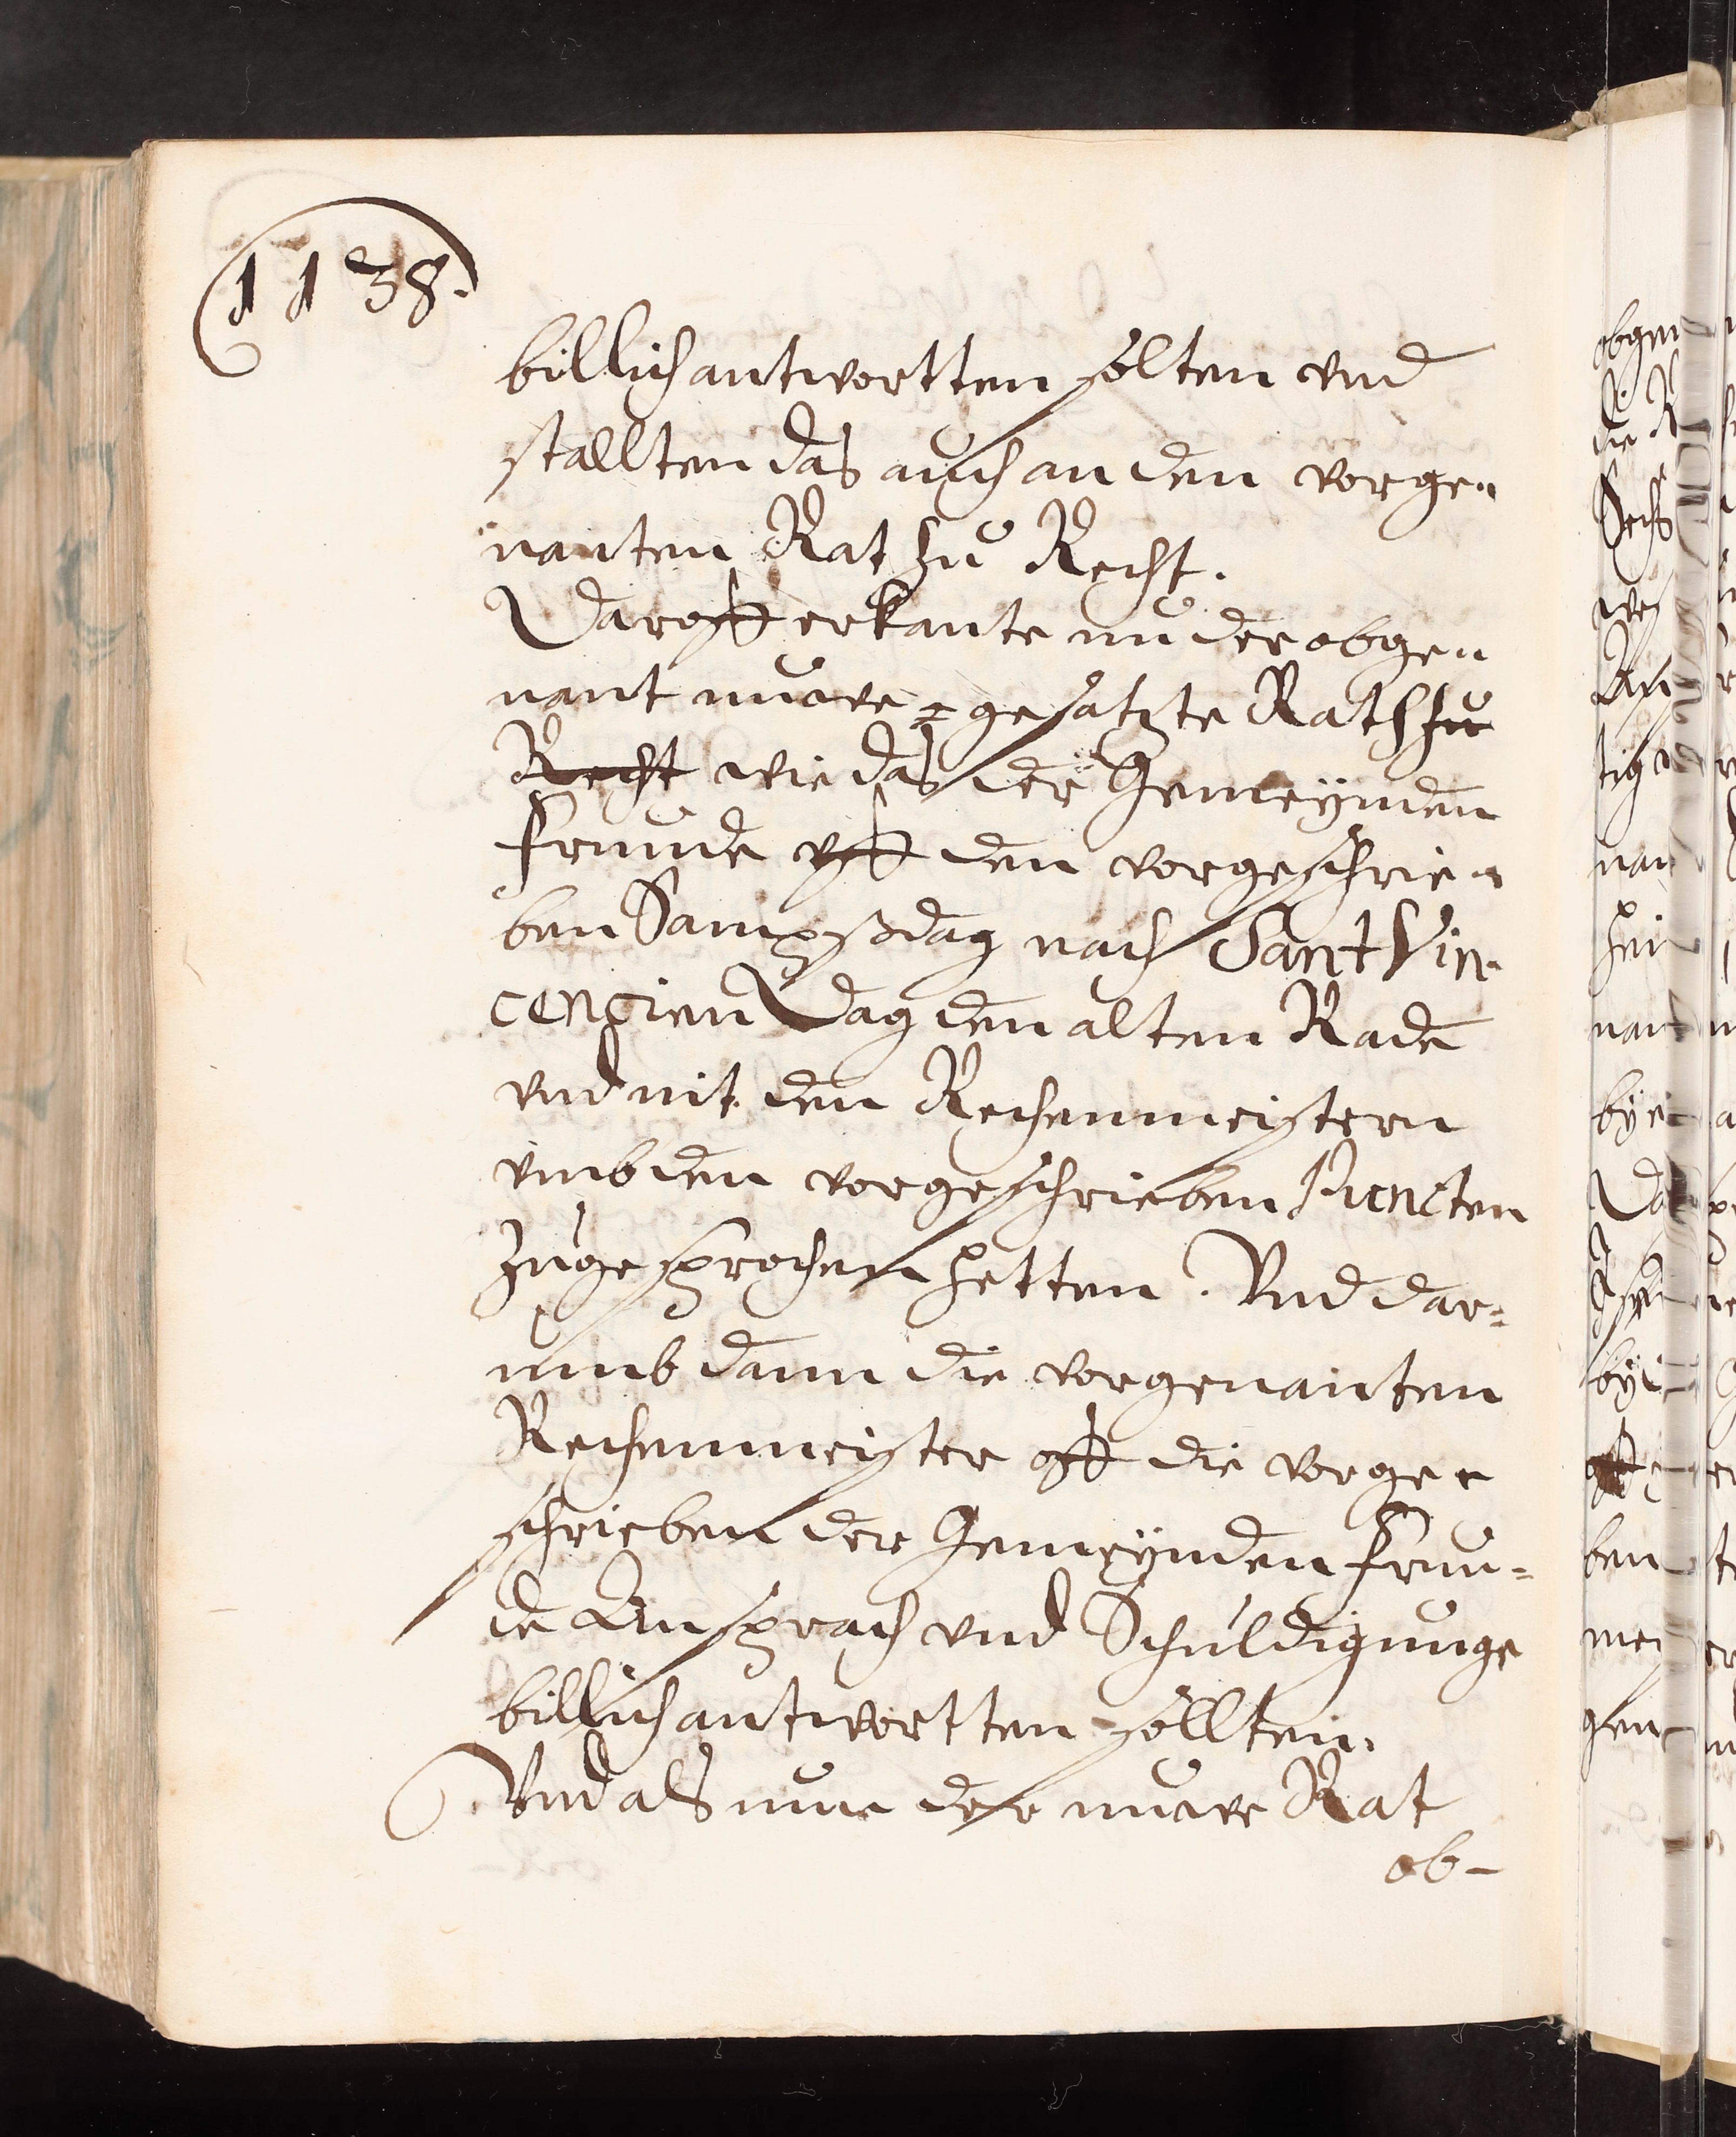 1138.
billich antwortten solten vnd
stallten das auch an den vorge„
nanten Rat zu Recht.
Daroff erkante nu der obge„
nant nuwe = gesatzte Rath zu
Recht wie das der Gemeÿnden
frunde vff den vorgeschrie„
ben Sampßdag nach Sant Vin„
cencien Dag den alten Rade
vnd nit den Rechenmeistern
vmb den vorgeschrieben Puncten
zugesprochen hetten. Vnd dar„
umb dann die vorgenanten
Rechenmeister off die vorge„
schrieben der Gemeÿnden frun„
de Ansprach vnd Schuldigunge
billich antwortten söllten.
Vnd als nue der nuwe Rat
ob-